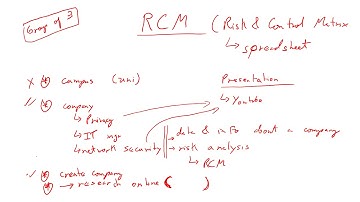 Group of 3
RCM (Risk & Control Matrix
↳ spreadsheet
x * campus (uni)
Presentation
↳ Youtube
// * company
↳ Privacy
↳ IT mgn
↳ network security
↳ data & info about a company
↳ risk analysis
↳ RCM
✓ * create company
* → research online ( )